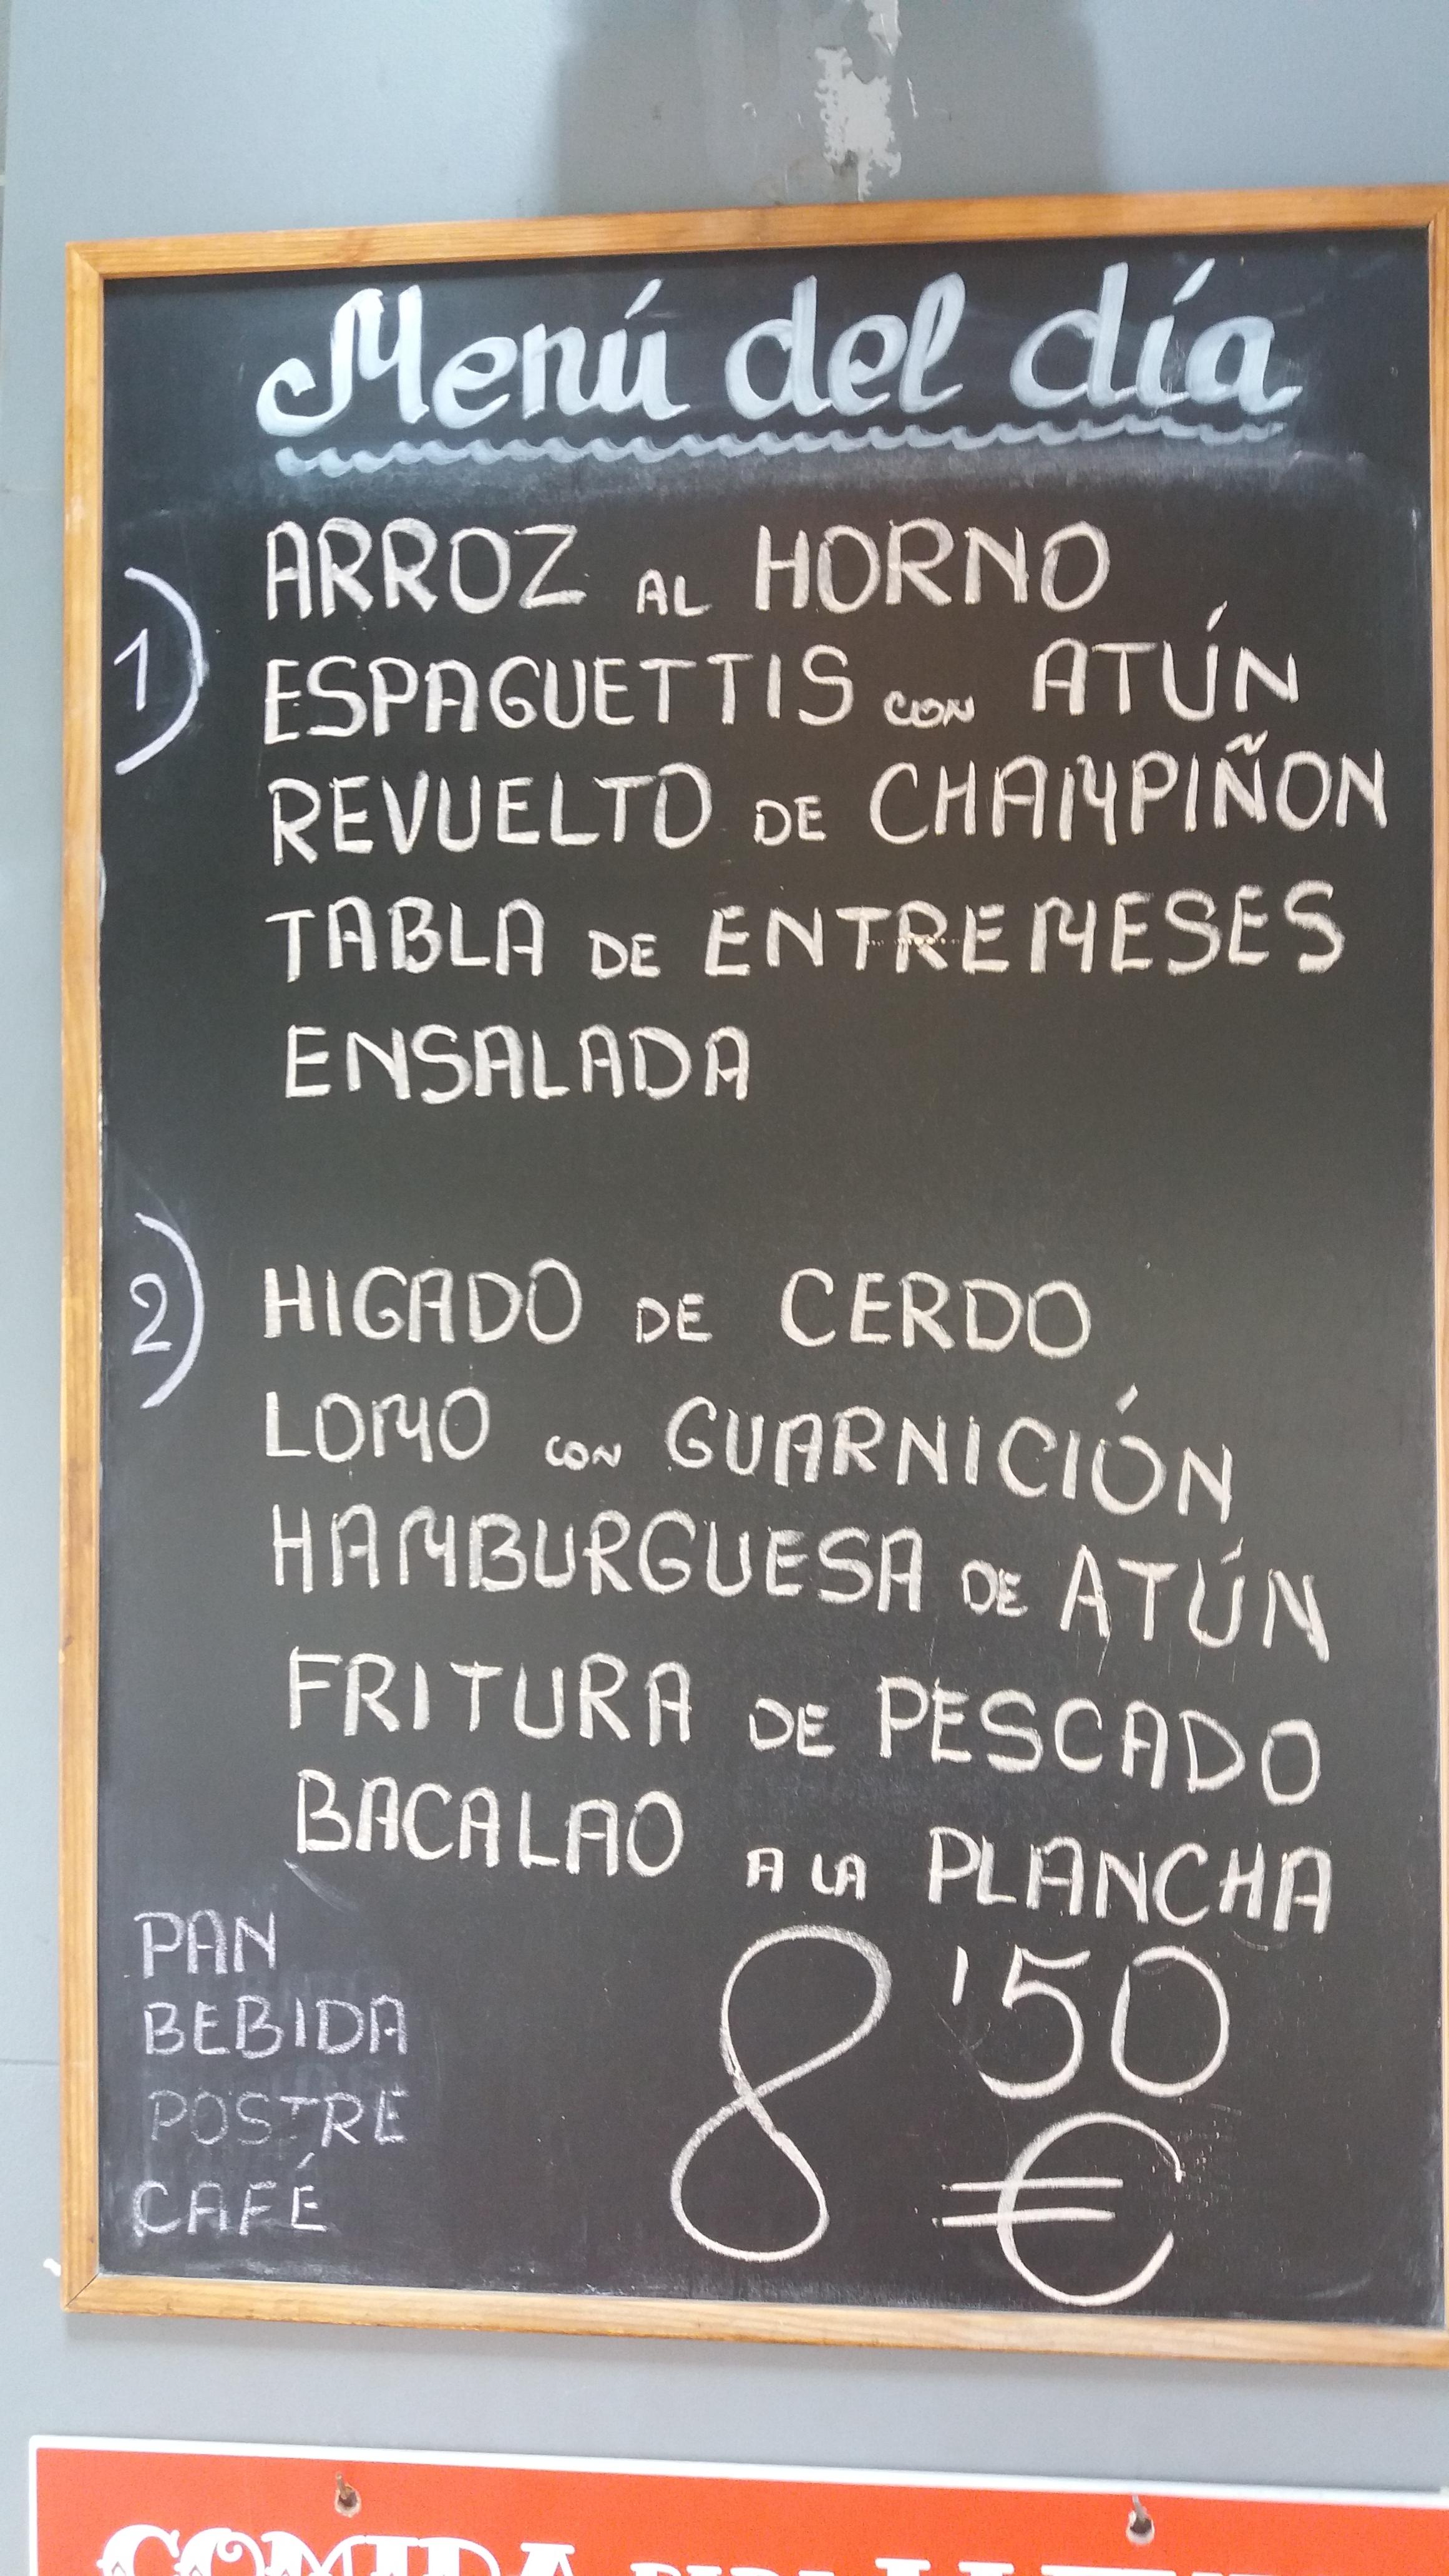 Menú del día
1)
ARROZ AL HORNO
ESPAGUETTIS CON ATÚN
REVUELTO DE CHAMPIÑON
TABLA DE ENTREMESES
ENSALADA
2)
HIGADO DE CERDO
LOMO CON GUARNICIÓN
HAMBURGUESA DE ATÚN
FRITURA DE PESCADO
BACALAO A LA PLANCHA
PAN
BEBIDA
POSTRE
CAFÉ
8'50
€
COMIDA